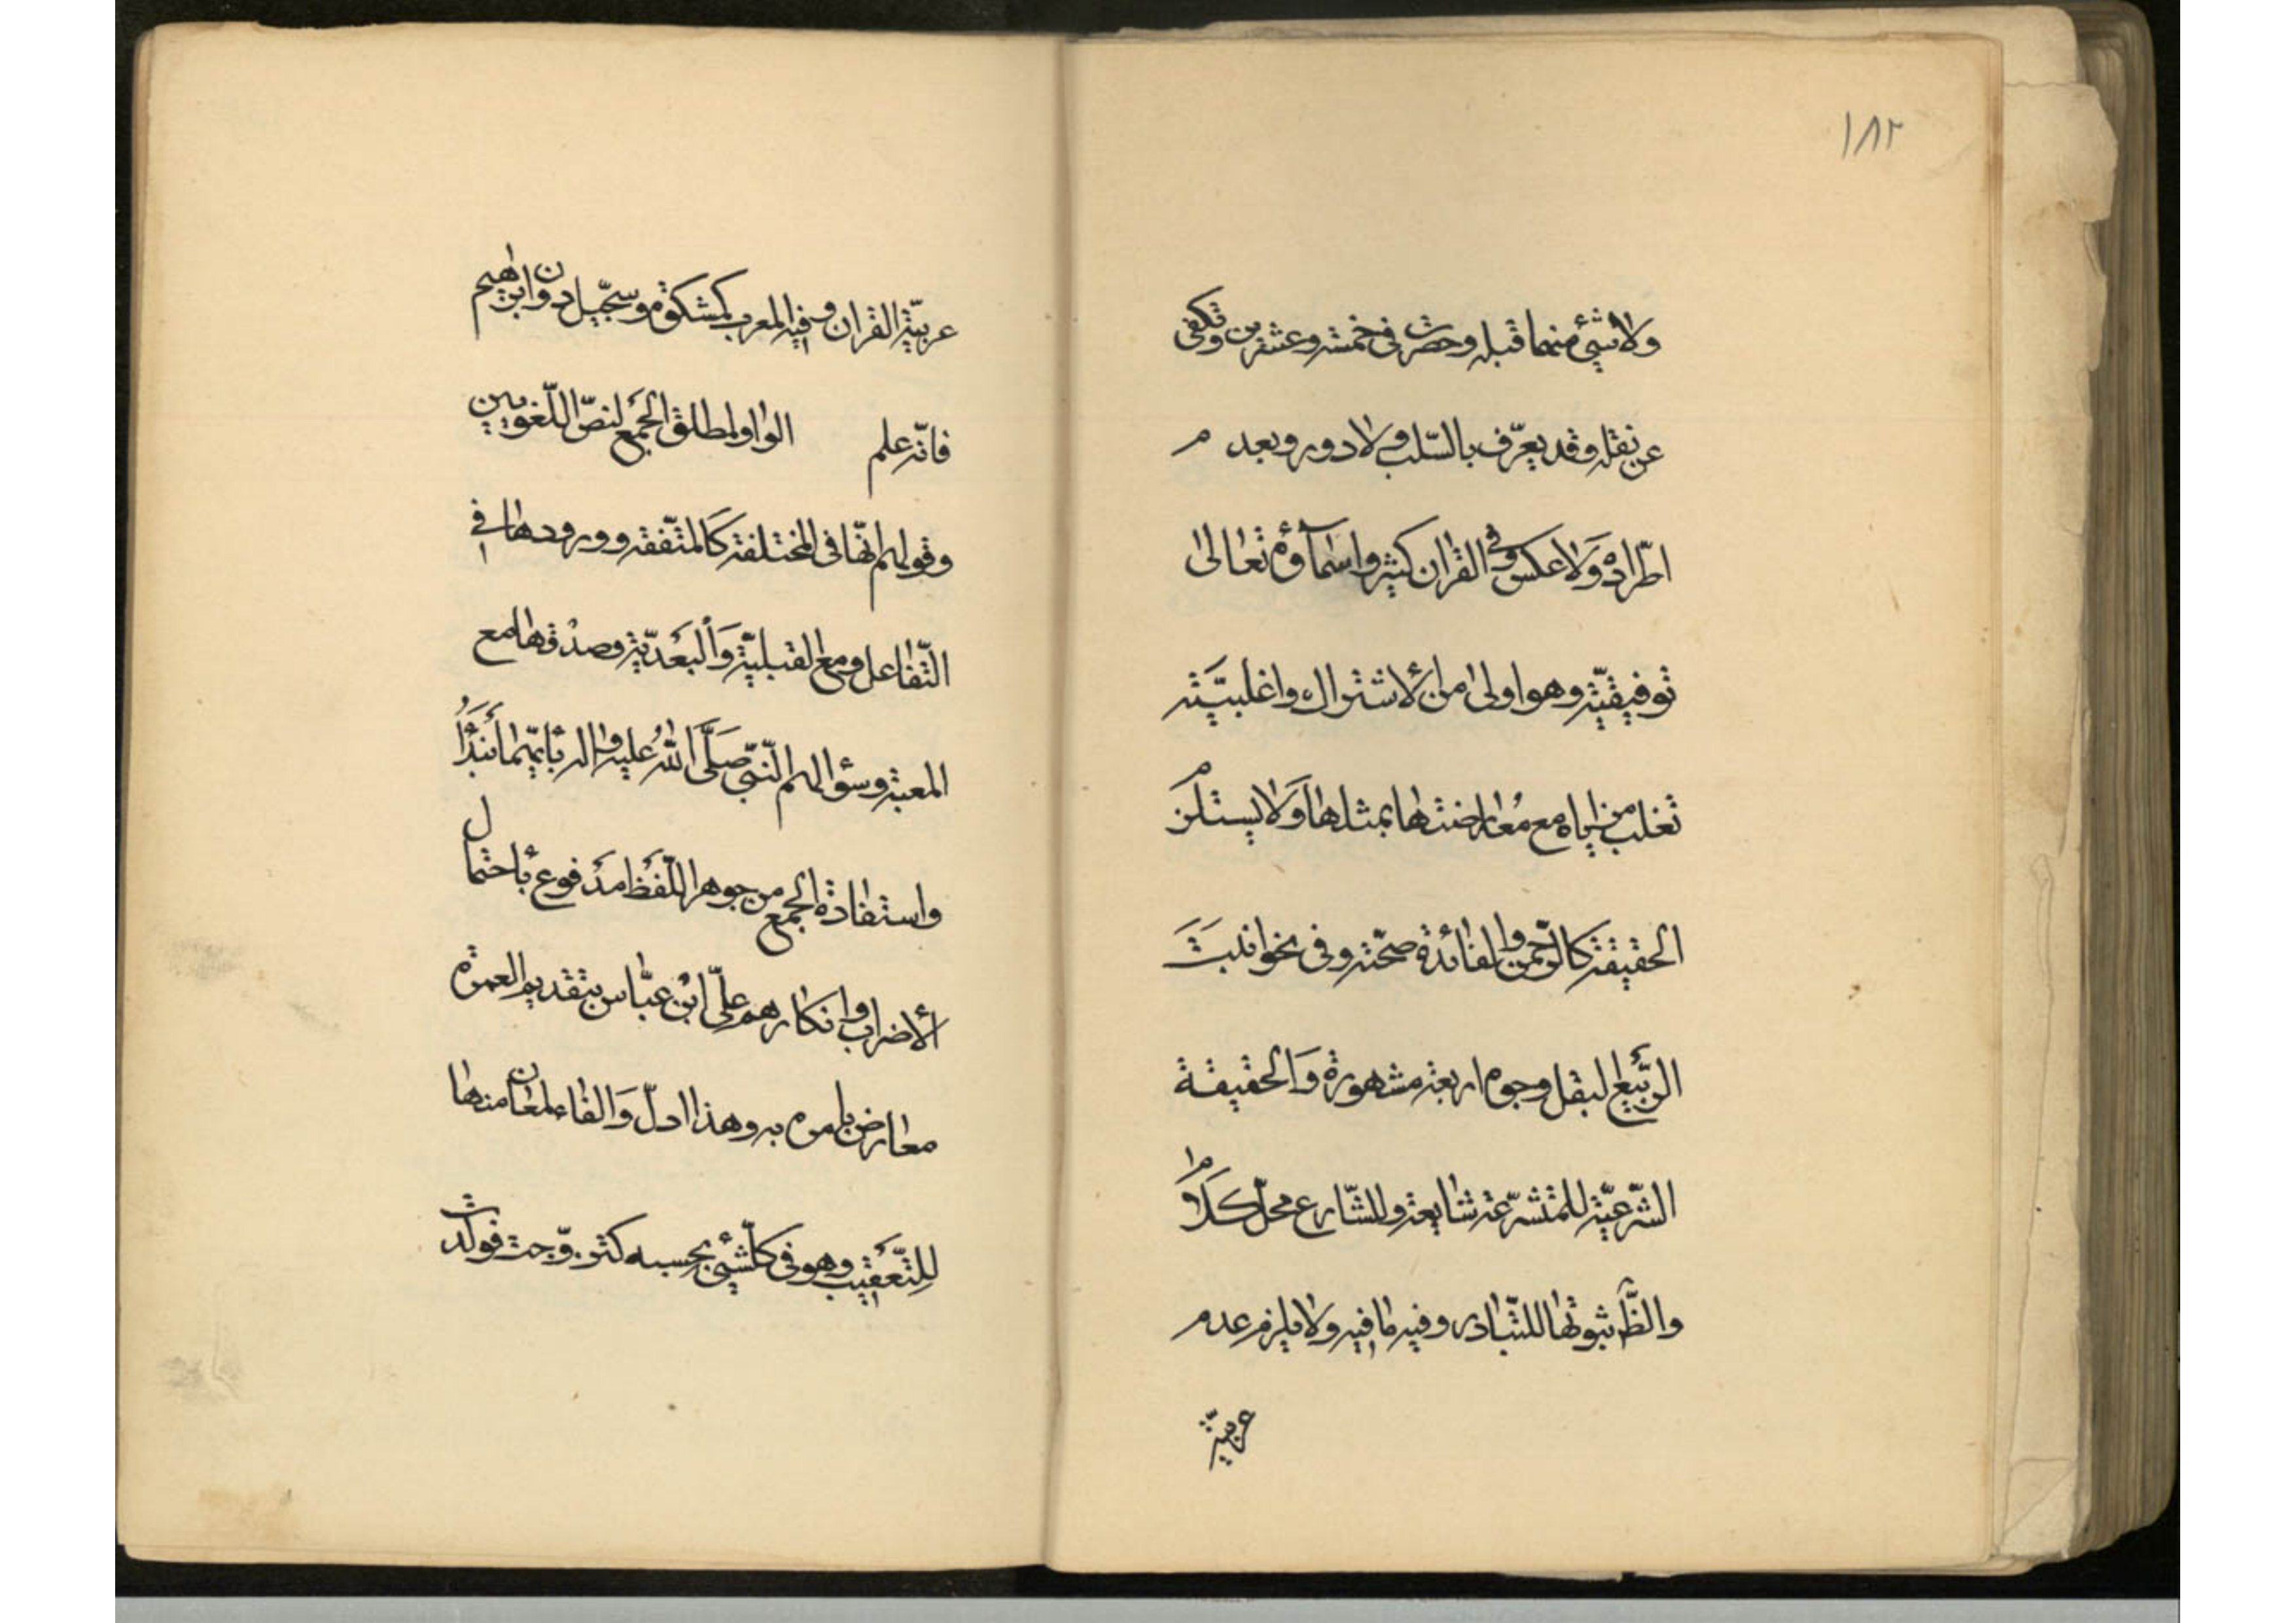 ١٨٢
ولا شيء منهما قبله وحصرت في خمسة وعشرين وتكفي
عن نقله وقد يعرّف بالسّلب ولا دور وبعدم
اطّراده وَلا عكس وفي القران كثير واسماؤه تعالى
توفيقيّة وهو اولى من الاشتراك واغلبيّته
تغلب مزاياه مع مُعارضتها بمثلها وَلا يستلزم
الحقيقة كالرّحمن والفائدة صحّته وفي نحو انبتَ
الرّبيعُ البقل وجوه اربعة مشهورة وَالحقيقة
الشّرعيّة للمتشرّعة شايعة وللشّارع محلّ كلام
والظَّ ثبوتها للتّبادر وفيه ما فيه ولا يلزم عدم
عربيّة
عربيّة القران وفيه المعرب كمشكوة وسجّيل دون ابرهيم
فانّه علم الواو لمطلق الجمع لنصّ اللّغويين
وقولهم انّها في المختلفة كَالمتّفقه وورودها في
التّفاعل ومع القبليّة وَالبَعْديّة وصدْقها مع
المعيّة وسؤالهم النّبيّ صَلَّى اللهُ عليه واله بايّهما نبدَأُ
واستفادة الجمع من جوهر اللّفظ مدفوع باحتمال
الأضراب وانكارهم علَى ابْن عبّاس بتقديم العمرة
معارض بامره به وهذا ادلّ وَالفاء لمعان منها
للتّعقيب وهو في كلّ شيء بحسبه كتزوّجت فولدت